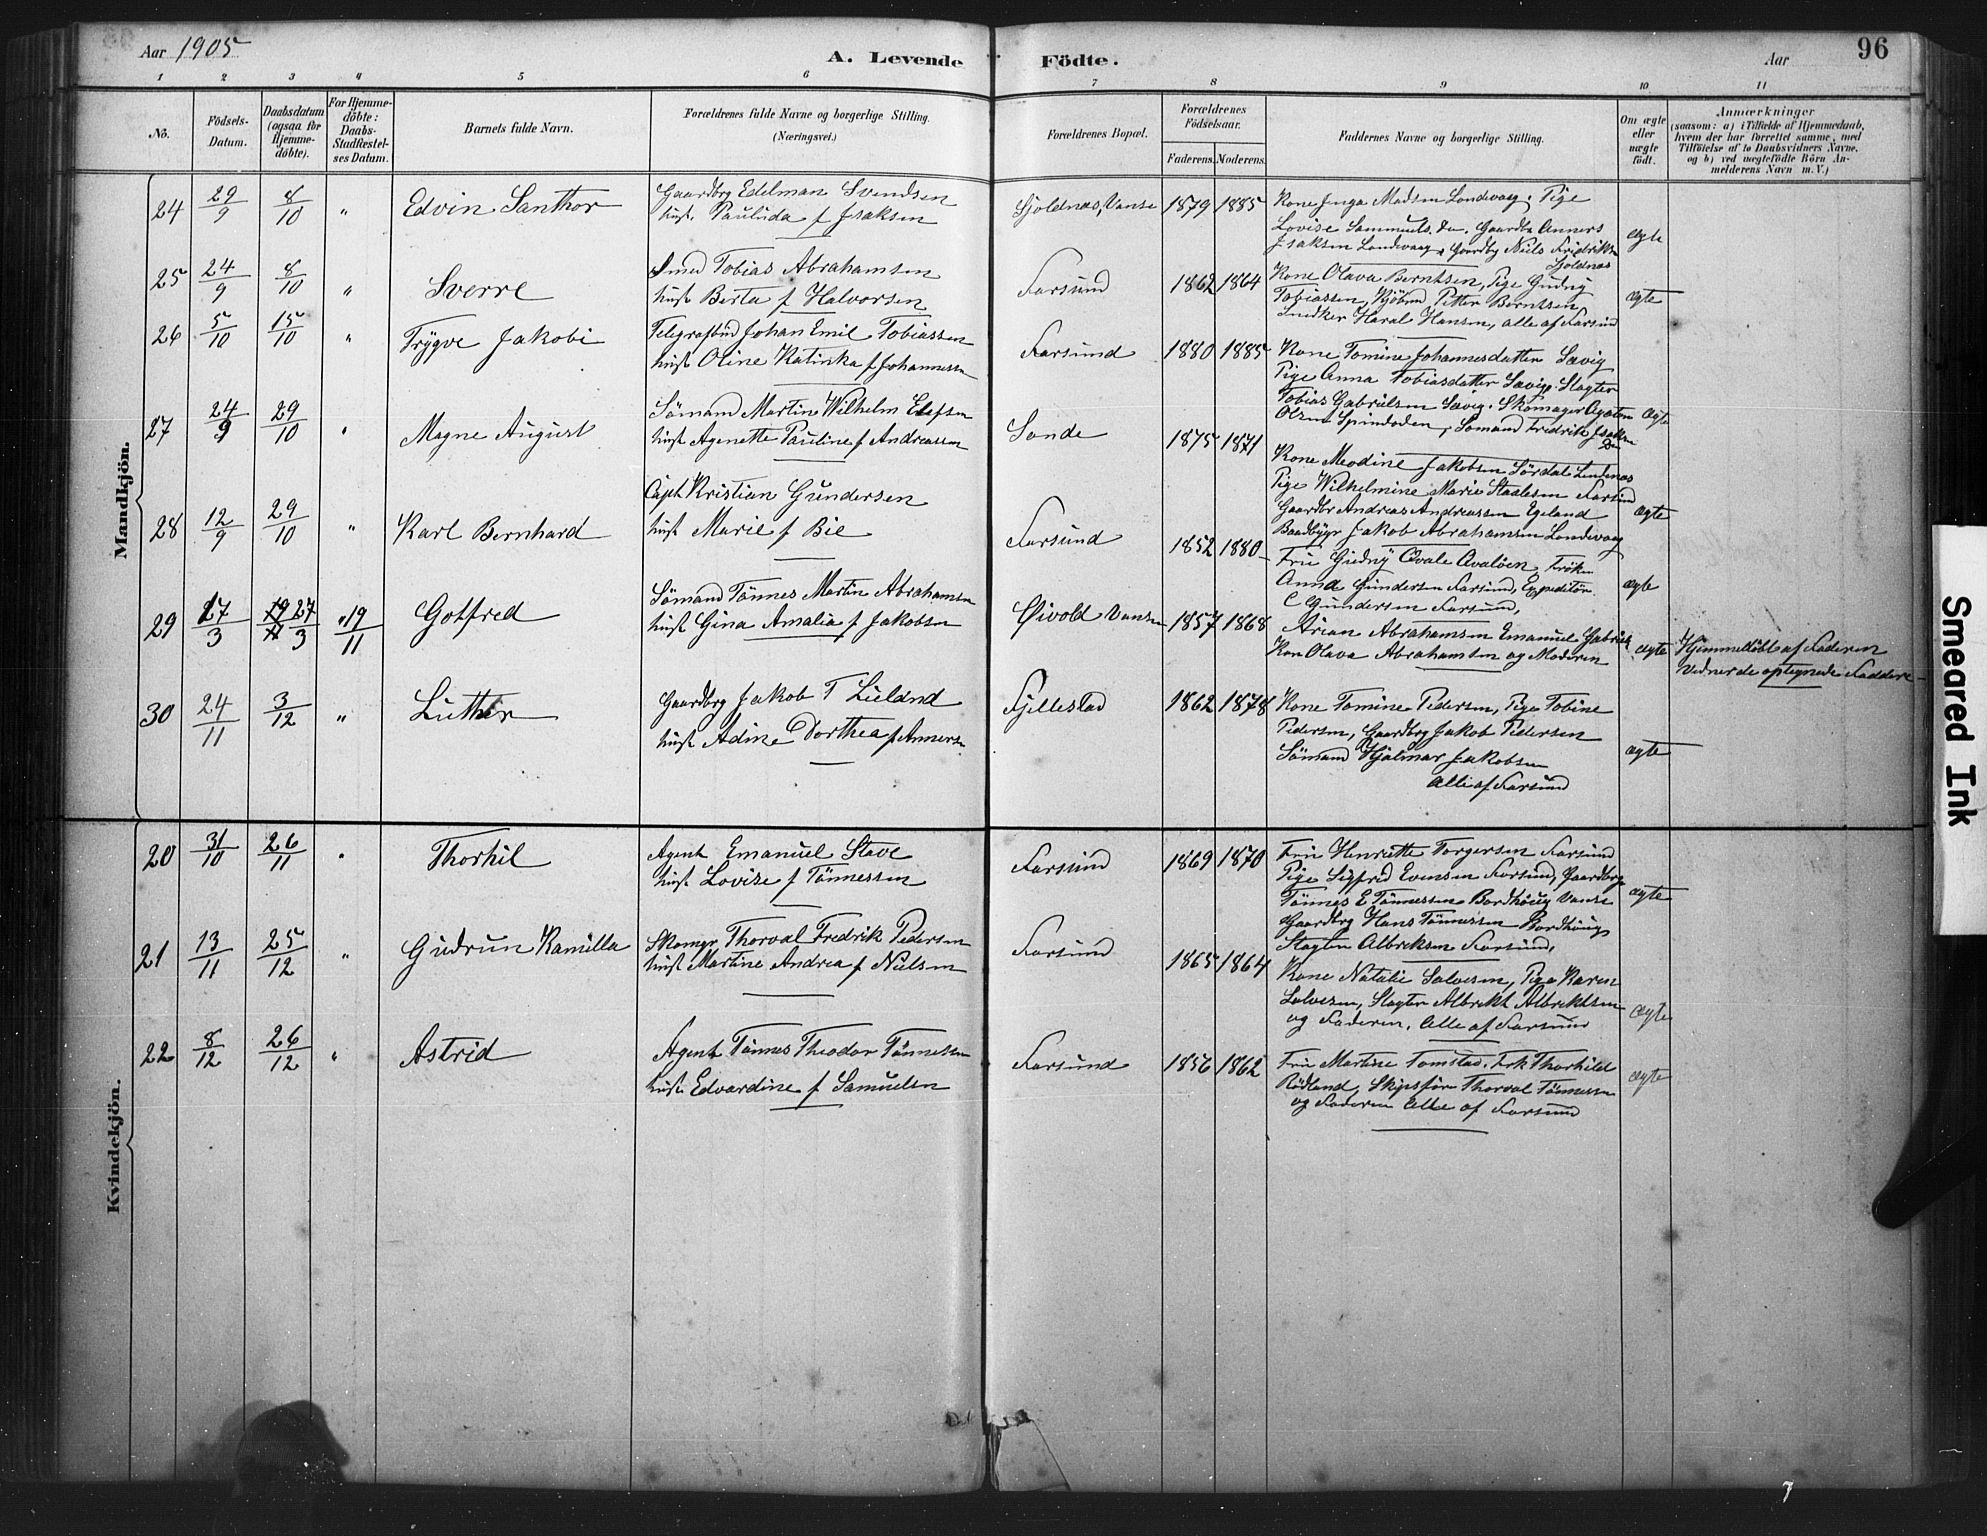 Aar 1905
A. Levende Födte.
Aar
96
1 2 3 4 5 6 7 8 9 10 11
No.
Födsels-Datum.
Daabsdatum (ogsaa for Hjemme-döbte).
For Hjemme-döbte: Daabs-Stadfæstel-ses Datum.
Barnets fulde Navn.
Forældrenes fulde Navne og borgerlige Stilling. (Næringsvei.)
Forældrenes Bopæl.
Forældrenes Födselsaar.
Faderens. Moderens.
Faddernes Navne og borgerlige Stilling.
Om ægte eller uægte födt.
Anmærkninger
(saasom: a) i Tilfælde af Hjemmedaab,
hvem der har forrettet samme, med
Tilföielse af to Daabsvidners Navne,
og b) ved uægtefödte Börn An-
melderens Navn m. V.)
Mandkjön.
24 29/9 8/10 " Edvin Santhor
Gaardbrg Edelman Svendsen
hust Pauluda f Isaksen
Sjoldnas, Vanse 1879 1885
Kone Inga Madsen Londevaag, Pige
Lovise Sammuels. do. Gaardbr Anners
Isaksen Londevaag, Gaardbg Niels Fridriksn
Sjoldnas
ægte
25 24/9 8/10 " Sverre
Smed Tobias Abrahamsen
hust Berta f Halvorsen
Farsund 1862 1864
Kone Olava Berntsen, Pige Gudny
Tobiassen, Kjöbmd Petter Berntsen,
Snedker Haral Hansen, alle af Farsund
ægte
26 5/10 15/10 " Trygve Jakobi
Telegrafbud Johan Emil Tobiassen
hust Oline Katinka f Johannessn
Farsund 1880 1885
Kone Tomine Johannesdatter Sævig
Pige Anna Tobiasdatter Sævig. Slagter
Tobias Gabrielsen Sævig. Skomager
Olsen Spindoden, Sömand Fredrik Isaksn
ægte
27 24/9 29/10 " Magne August
Sömand Martin Wilhelm Elefsen
hust Agenette Pauline f Andreassen
Sande 1875 1871
Kone Meodine Jakobsen Sördal Lindenas
Pige Wilhelmine Marie Staalesen Farsund
Gaardbr Andreas Andreassen Egeland
Baadbygr Jakob Abrahamsen Londevaag
ægte
28 12/9 29/10 " Karl Bernhard
Capt Kristian Gundersen
hust Marie f Bie
Farsund 1852 1880
Fru Gudny Qvale Qvalöen, Frökn
Anna Gundersen Farsund, Expeditör
C Gundersen Farsund,
ægte
29 17/3 27/3 " 19/11 Gotfred
Sömand Tönnes Martin Abrahamsn
hust Gina Amalia f Jakobsn
Öivold Vanse 1857 1868
Arian Abrahamsen Emanuel Gabriels
Kon Olava Abrahamsen og Moderen
ægte
Hjemmedöbt af Faderen
Vidner de optegnede Faddere
30 24/11 3/12 " Luther
Gaardbrg Jakob T Lieland
hust Adine Dorthea f Annersn
Fjellestad 1862 1878
Kone Tomine Pedersen, Pige Tobine
Pedersen, Gaardbrg Jakob Pedersen
Sömand Hjalmar Jakobsen
Alle af Farsund
ægte
Kvindekjön.
20 31/10 26/11 " Thorhil
Agent Emanuel Stave
hust Lovise f Tönnessen
Farsund 1869 1870
Fru Henriette Torgersen Farsund
Pige Sigfred Evensen Farsund, Gaardbrg
Tönnes E Tönnessen Bordhöug Vanse
Gaardbrg Hans Tönnessen Bordhöug
Slagter Albriksen Farsund,
ægte
21 13/11 25/12 " Gudrun Kamilla
Skomgr Thorval Fredrik Pedersen
hust Martine Andrea f Nielsen
Farsund 1865 1864
Kone Natalie Salvesen, Pige Karen
Salvesen, Slagter Albrekt Albrektsen
og Faderen. Alle af Farsund
ægte
22 8/12 26/12 " Astrid
Agent Tönnes Theodor Tönnessn
hust Edvardine f Samuelsn
Farsund 1856 1862
Fru Martine Tomstad. Frk Thorhild
Rödland, Skipsför Thorval Tönnessen
og Faderen Alle af Farsund
ægte
Smeared Ink